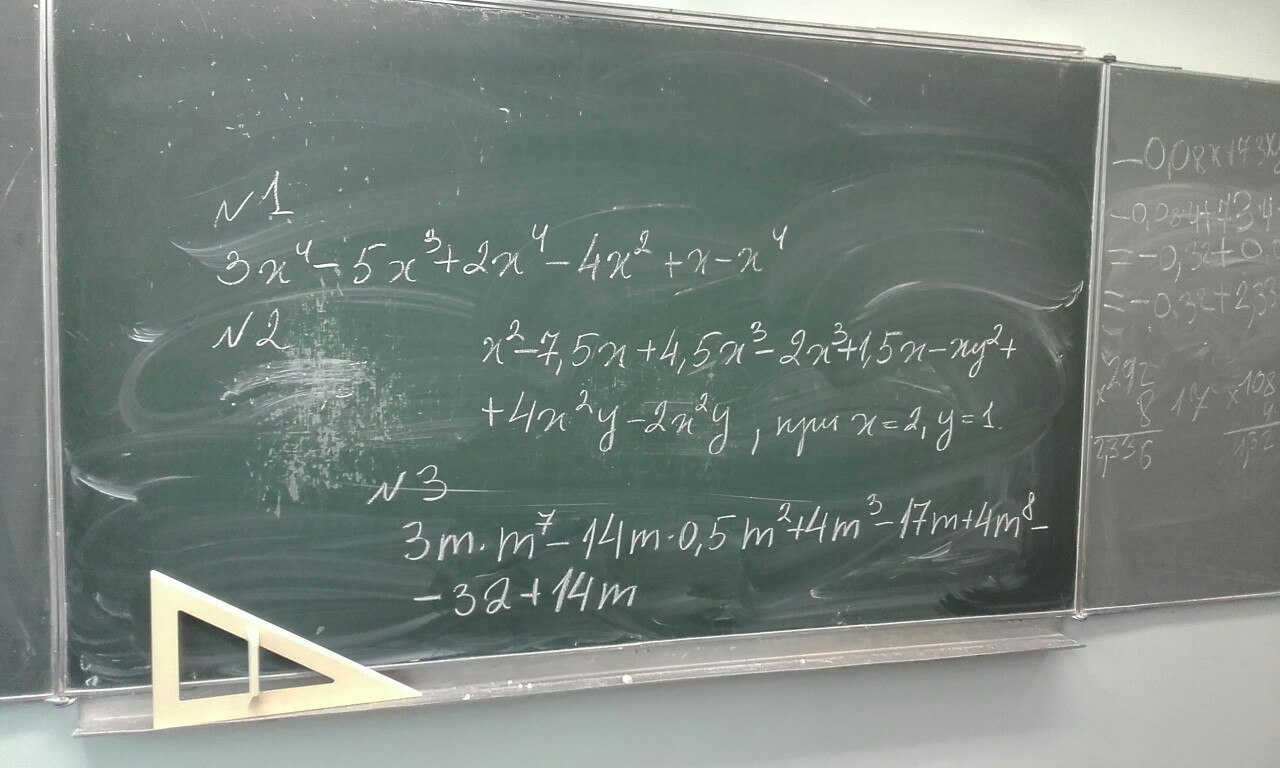 №1
3x⁴ - 5x³ + 2x⁴ - 4x² + x - x⁴
№2
x² - 7,5x + 4,5x³ - 2x³ + 1,5x - xy² +
+ 4x²y - 2x²y, при x = 2, y = 1.
№3
3m · m⁷ - 14m · 0,5m² + 4m³ - 17m + 4m⁸ -
- 32 + 14m
-0,08x+73x
-0,08·4+73·4
= -0,32+0
= -0,32+2,33
×292
8
2,336
17
×108
4